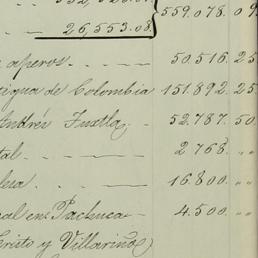 26,553.08. 559.078.0
y aperos 50.516.25
tigua de Colombia 151.892.25
Andrés Tuxtla 52.787.50
tal 2768. "
16.800. "
al en Pachuca 4.500. "
Cristo y Villariño